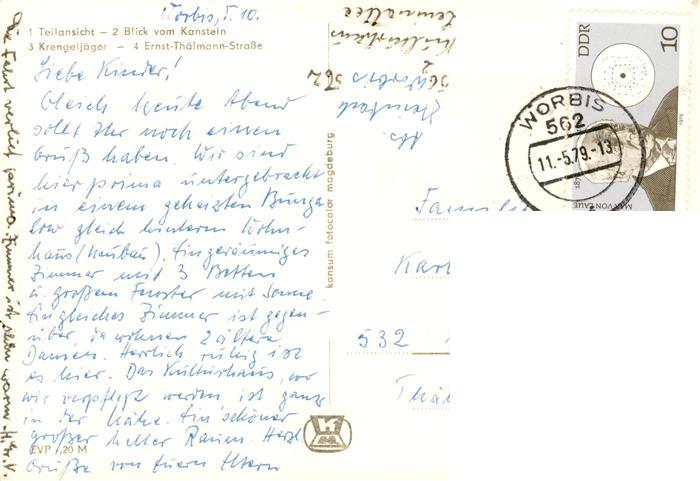 Worbis, 5. 10.
1 Teilansicht – 2 Blick vom Kanstein
3 Krengeljäger – 4 Ernst-Thälmann-Straße
Liebe Kinder!
Gleich heute Abend
sollt Ihr noch einen
Gruß haben. Wir sind
hier prima untergebracht
in einem geheizten Bunga
low gleich hinterm Wohn-
haus (Neubau). Ein geräumiges
Zimmer mit 3 Betten
u. großem Fenster mit Sonne.
Ein gleiches Zimmer ist gegen-
über, da wohnen 2 ältere
Damen. Herrlich ruhig ist
es hier. Das Kulturhaus, wo
wir verpflegt werden ist ganz
in der Nähe. Ein schöner
großer heller Raum. Herzl
Grüße von Euern Eltern
EVP -,20 M
Die Fahrt verlief prima. Zimmer ist schön warm.
konsum fotocolor magdeburg
Abs.
56 Worbis 562
Kulturhaus
DDR
10
1979
MAX VON LAUE
WORBIS
562
11.-5.79.-13
Famili
Karl
532
Thäl